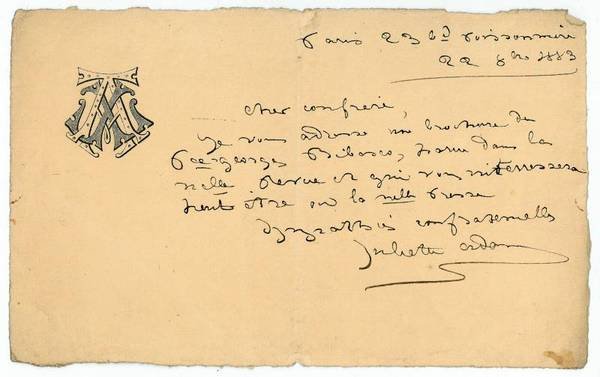 Paris 23 bd Poissonnière
22 8bre 1883
Cher confrère,
Je vous adresse une brochure du
Pce Georges Bibesco, parue dans la
nelle Revue et qui vous intéressera
peut être ou la nelle Presse
Sympathies confraternelles
Juliette Adam